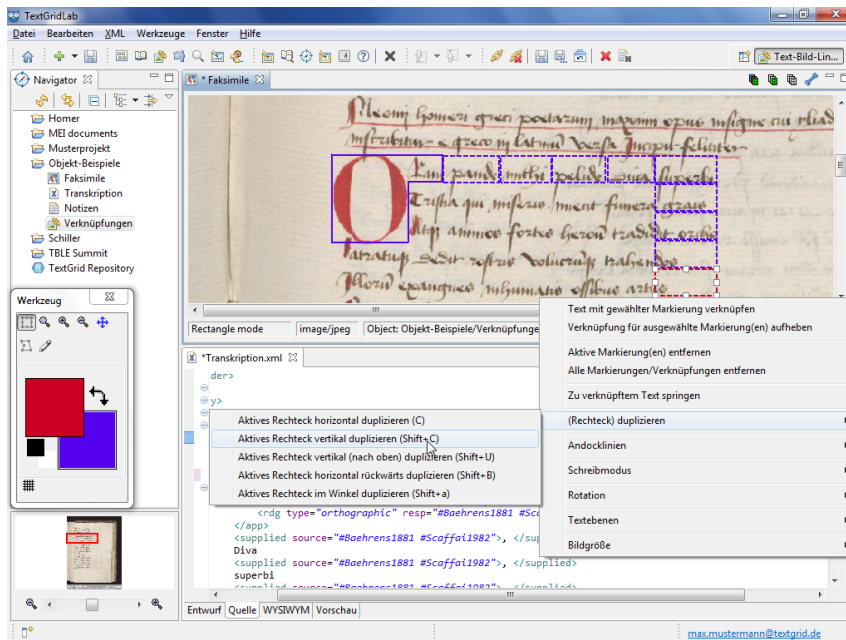 TextGridLab
Datei Bearbeiten XML Werkzeuge Fenster Hilfe
Text-Bild-Lin...
Navigator
* Faksimile
Homer
MEI documents
Musterprojekt
Objekt-Beispiele
Faksimile
Transkription
Notizen
Verknüpfungen
Schiller
TBLE Summit
TextGrid Repository
homeri greci poetarum opus insigne cui
greco in latinu versa Incipit feliciter
pande mihi pelide superbi
Tristia qui miseris funera grais
Atq animos fortes
rostris
Illoru exangues inhumatis ossibus artus
Werkzeug
Rectangle mode image/jpeg Object: Objekt-Beispiele/Verknüpfunge
Text mit gewählter Markierung verknüpfen
Verknüpfung für ausgewählte Markierung(en) aufheben
Aktive Markierung(en) entfernen
Alle Markierungen/Verknüpfungen entfernen
Zu verknüpftem Text springen
(Rechteck) duplizieren
Andocklinien
Schreibmodus
Rotation
Textebenen
Bildgröße
*Transkription.xml
der>
y>
Aktives Rechteck horizontal duplizieren (C)
Aktives Rechteck vertikal duplizieren (Shift+C)
Aktives Rechteck vertikal (nach oben) duplizieren (Shift+U)
Aktives Rechteck horizontal rückwärts duplizieren (Shift+B)
Aktives Rechteck im Winkel duplizieren (Shift+a)
<rdg type="orthographic" resp="#Baehrens1881 #Sc
</app>
<supplied source="#Baehrens1881 #Scaffai1982">, </sup
Diva
<supplied source="#Baehrens1881 #Scaffai1982">, </supplied>
superbi
<supplied source="#Baehrens1881 #Scaffai1982">, </supplied>
Entwurf Quelle WYSIWYM Vorschau
max.mustermann@textgrid.de